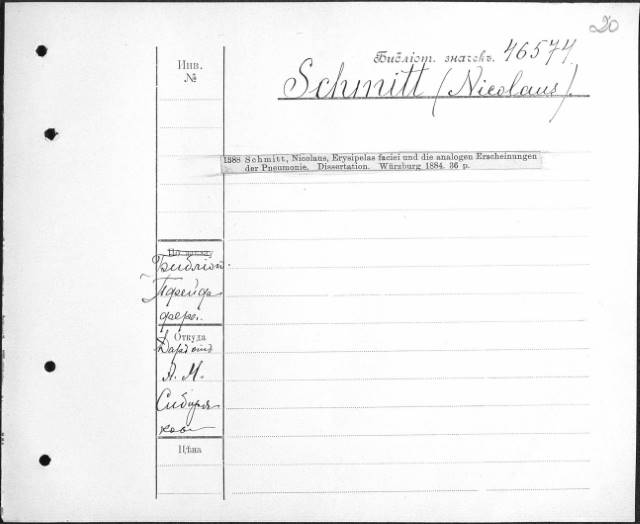 20
Инв.
№
Библіот. значекъ. 46574
Schmitt (Nicolaus).
1588 Schmitt, Nicolaus, Erysipelas faciei und die analogen Erscheinungen
der Pneumonie. Dissertation. Würzburg 1884. 36 p.
Библіот.
Прейф
фер.
Откуда
Даръ отъ
А. М.
Сибиря
кова
Цѣна